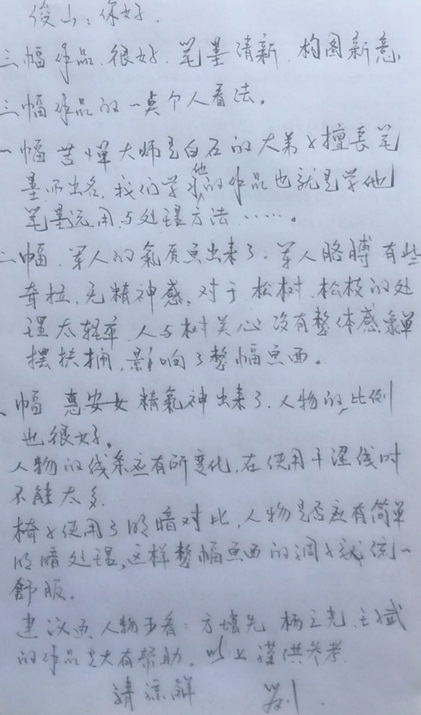 俊山：你好.
三幅作品很好.笔墨清新.构图新意,
三幅作品的一点个人看法。
一幅 苦憚大师是白石的大弟子擅长笔
墨而出名.我们学他的作品也就是学他
笔墨运用.与处理方法……。
二幅.军人的氣质画出来了.军人胳膊有些
奇拉.无精神感.对于松树.松枝的处
理太轻率.人与树关心没有整体感象单
摆扶搁.影响了整幅画面。
、幅 惠安女精氣神出来了.人物的比例
也很好。
人物的线条应有所变化.在使用干湿线时
不能太多
椅子使用了明暗对比,人物是否应有简单
明暗处理.这样整幅画面的调子就统一
舒服。
建议画人物多看：方增先 杨之光.王斌
的作品是大有帮助.以上谨供参考.
请谅解 刘